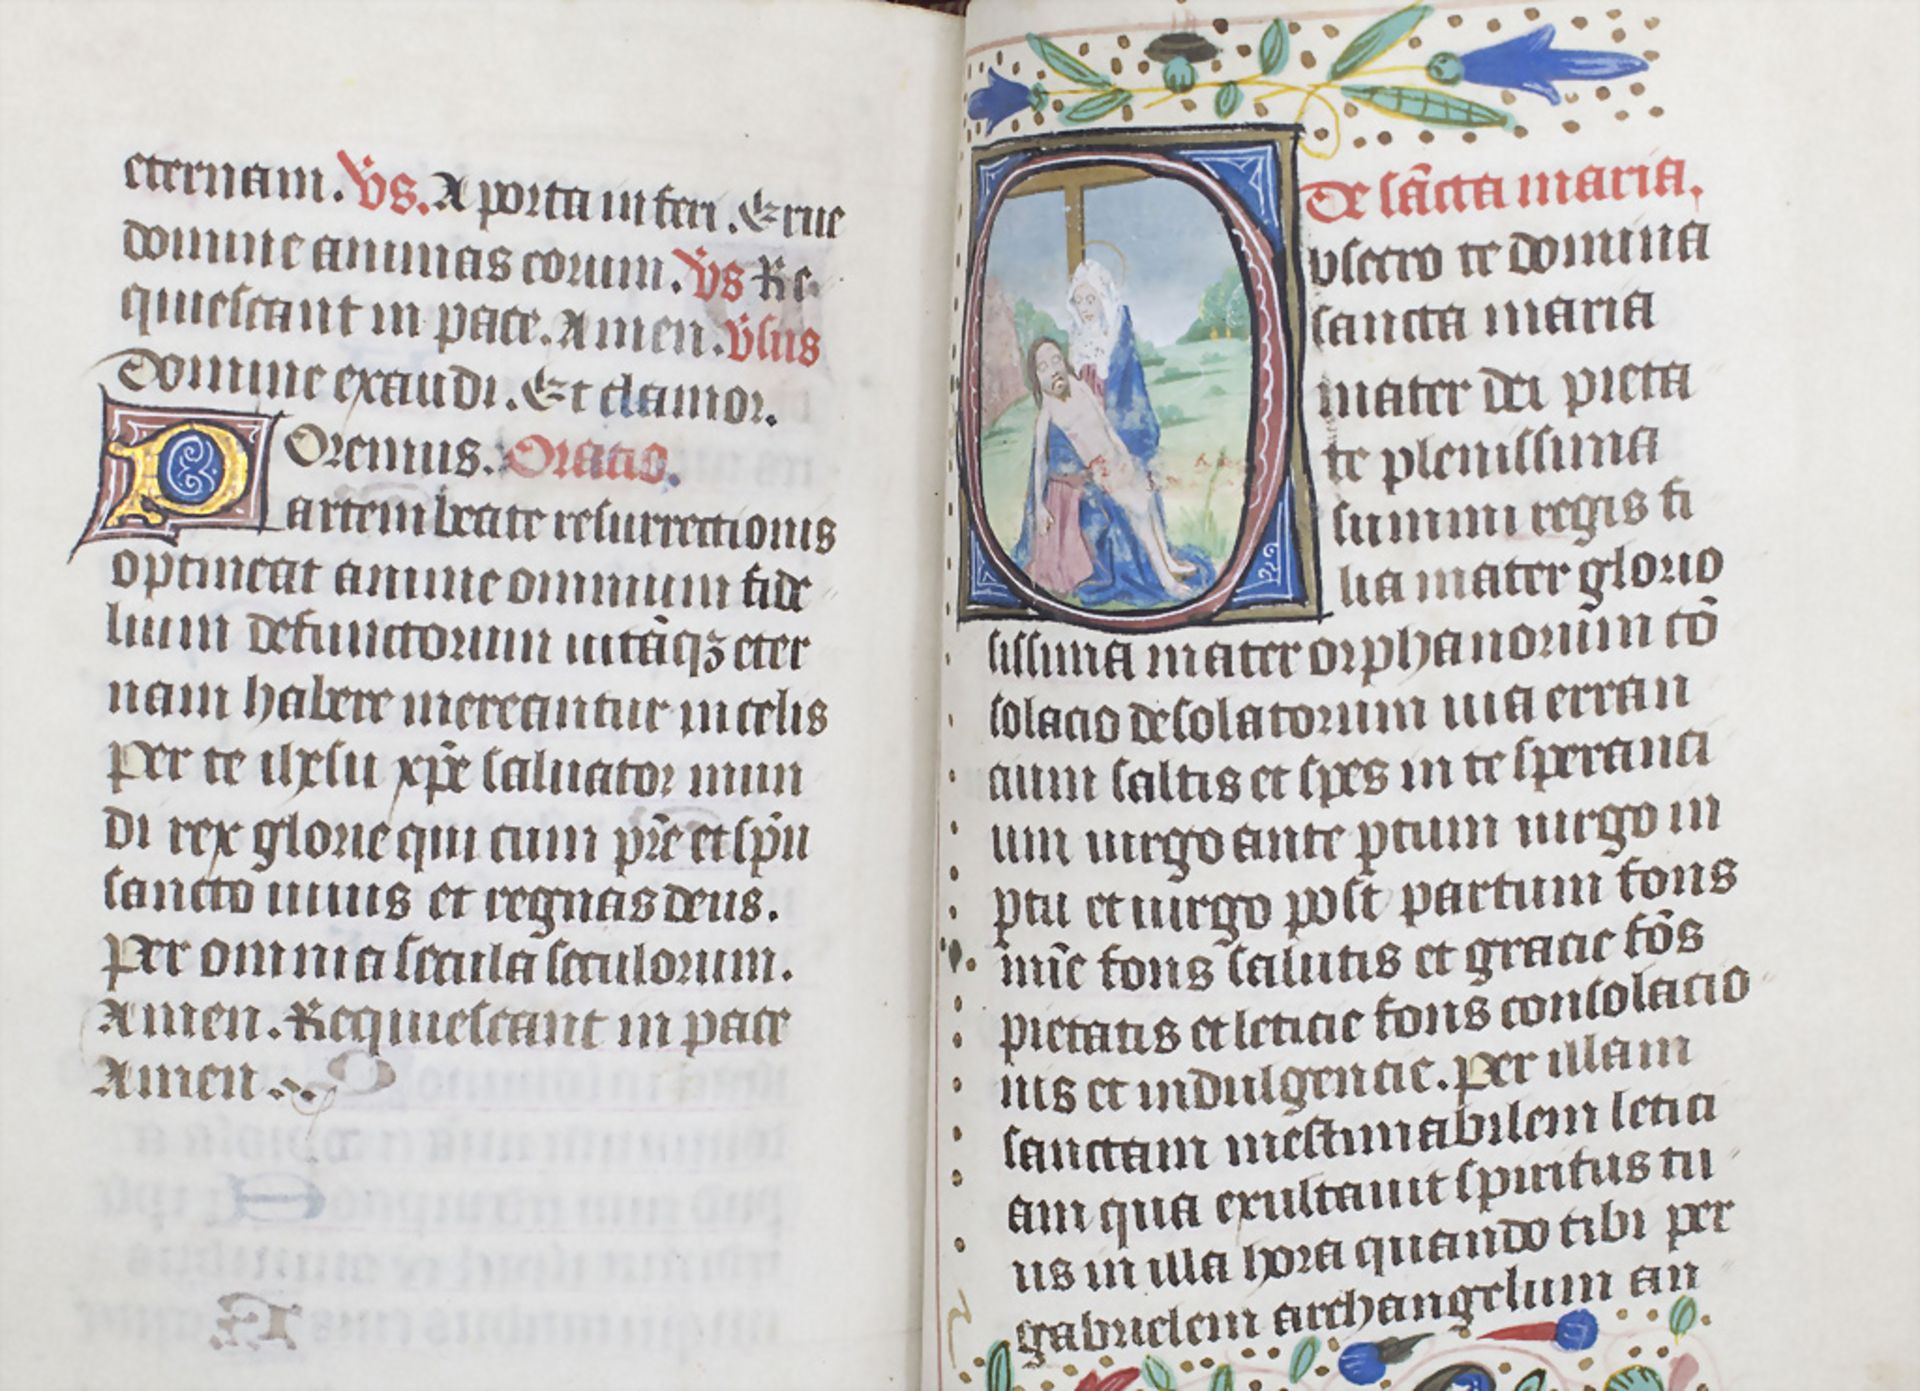 eternam. Vs. A porta inferi. Erue
domine animas eorum. Vs Re
quiescant in pace. Amen. Vsus
Domine exaudi. Et clamor.
Oremus. Oratio.
Partem beate resurrectionis
optineat anime omnium fide
lium defunctorum uitāqꝫ eter
nam habere mereantur in celis
per te ihesu xp̄e saluator mun
di rex glorie qui cum pr̄e et sp̄u
sancto uiuis et regnas deus.
Per omnia secula seculorum.
Amen. Requiescant in pace
Amen.
De sācta maria.
Obsecro te domina
sancta maria
mater dei pieta
te plenissima
summi regis fi
lia mater glorio
sissima mater orphanorum cō
solacio desolatorum uia erran
cium saltis et spes in te speranci
um uirgo ante ptum uirgo in
ptu et uirgo post partum fons
mīe fons salutis et gracie fōs
pietatis et leticie fons consolacio
nis et indulgencie. Per illam
sanctam inestimabilem letici
am qua exultauit spiritus tu
us in illa hora quando tibi per
gabrielem archangelum an